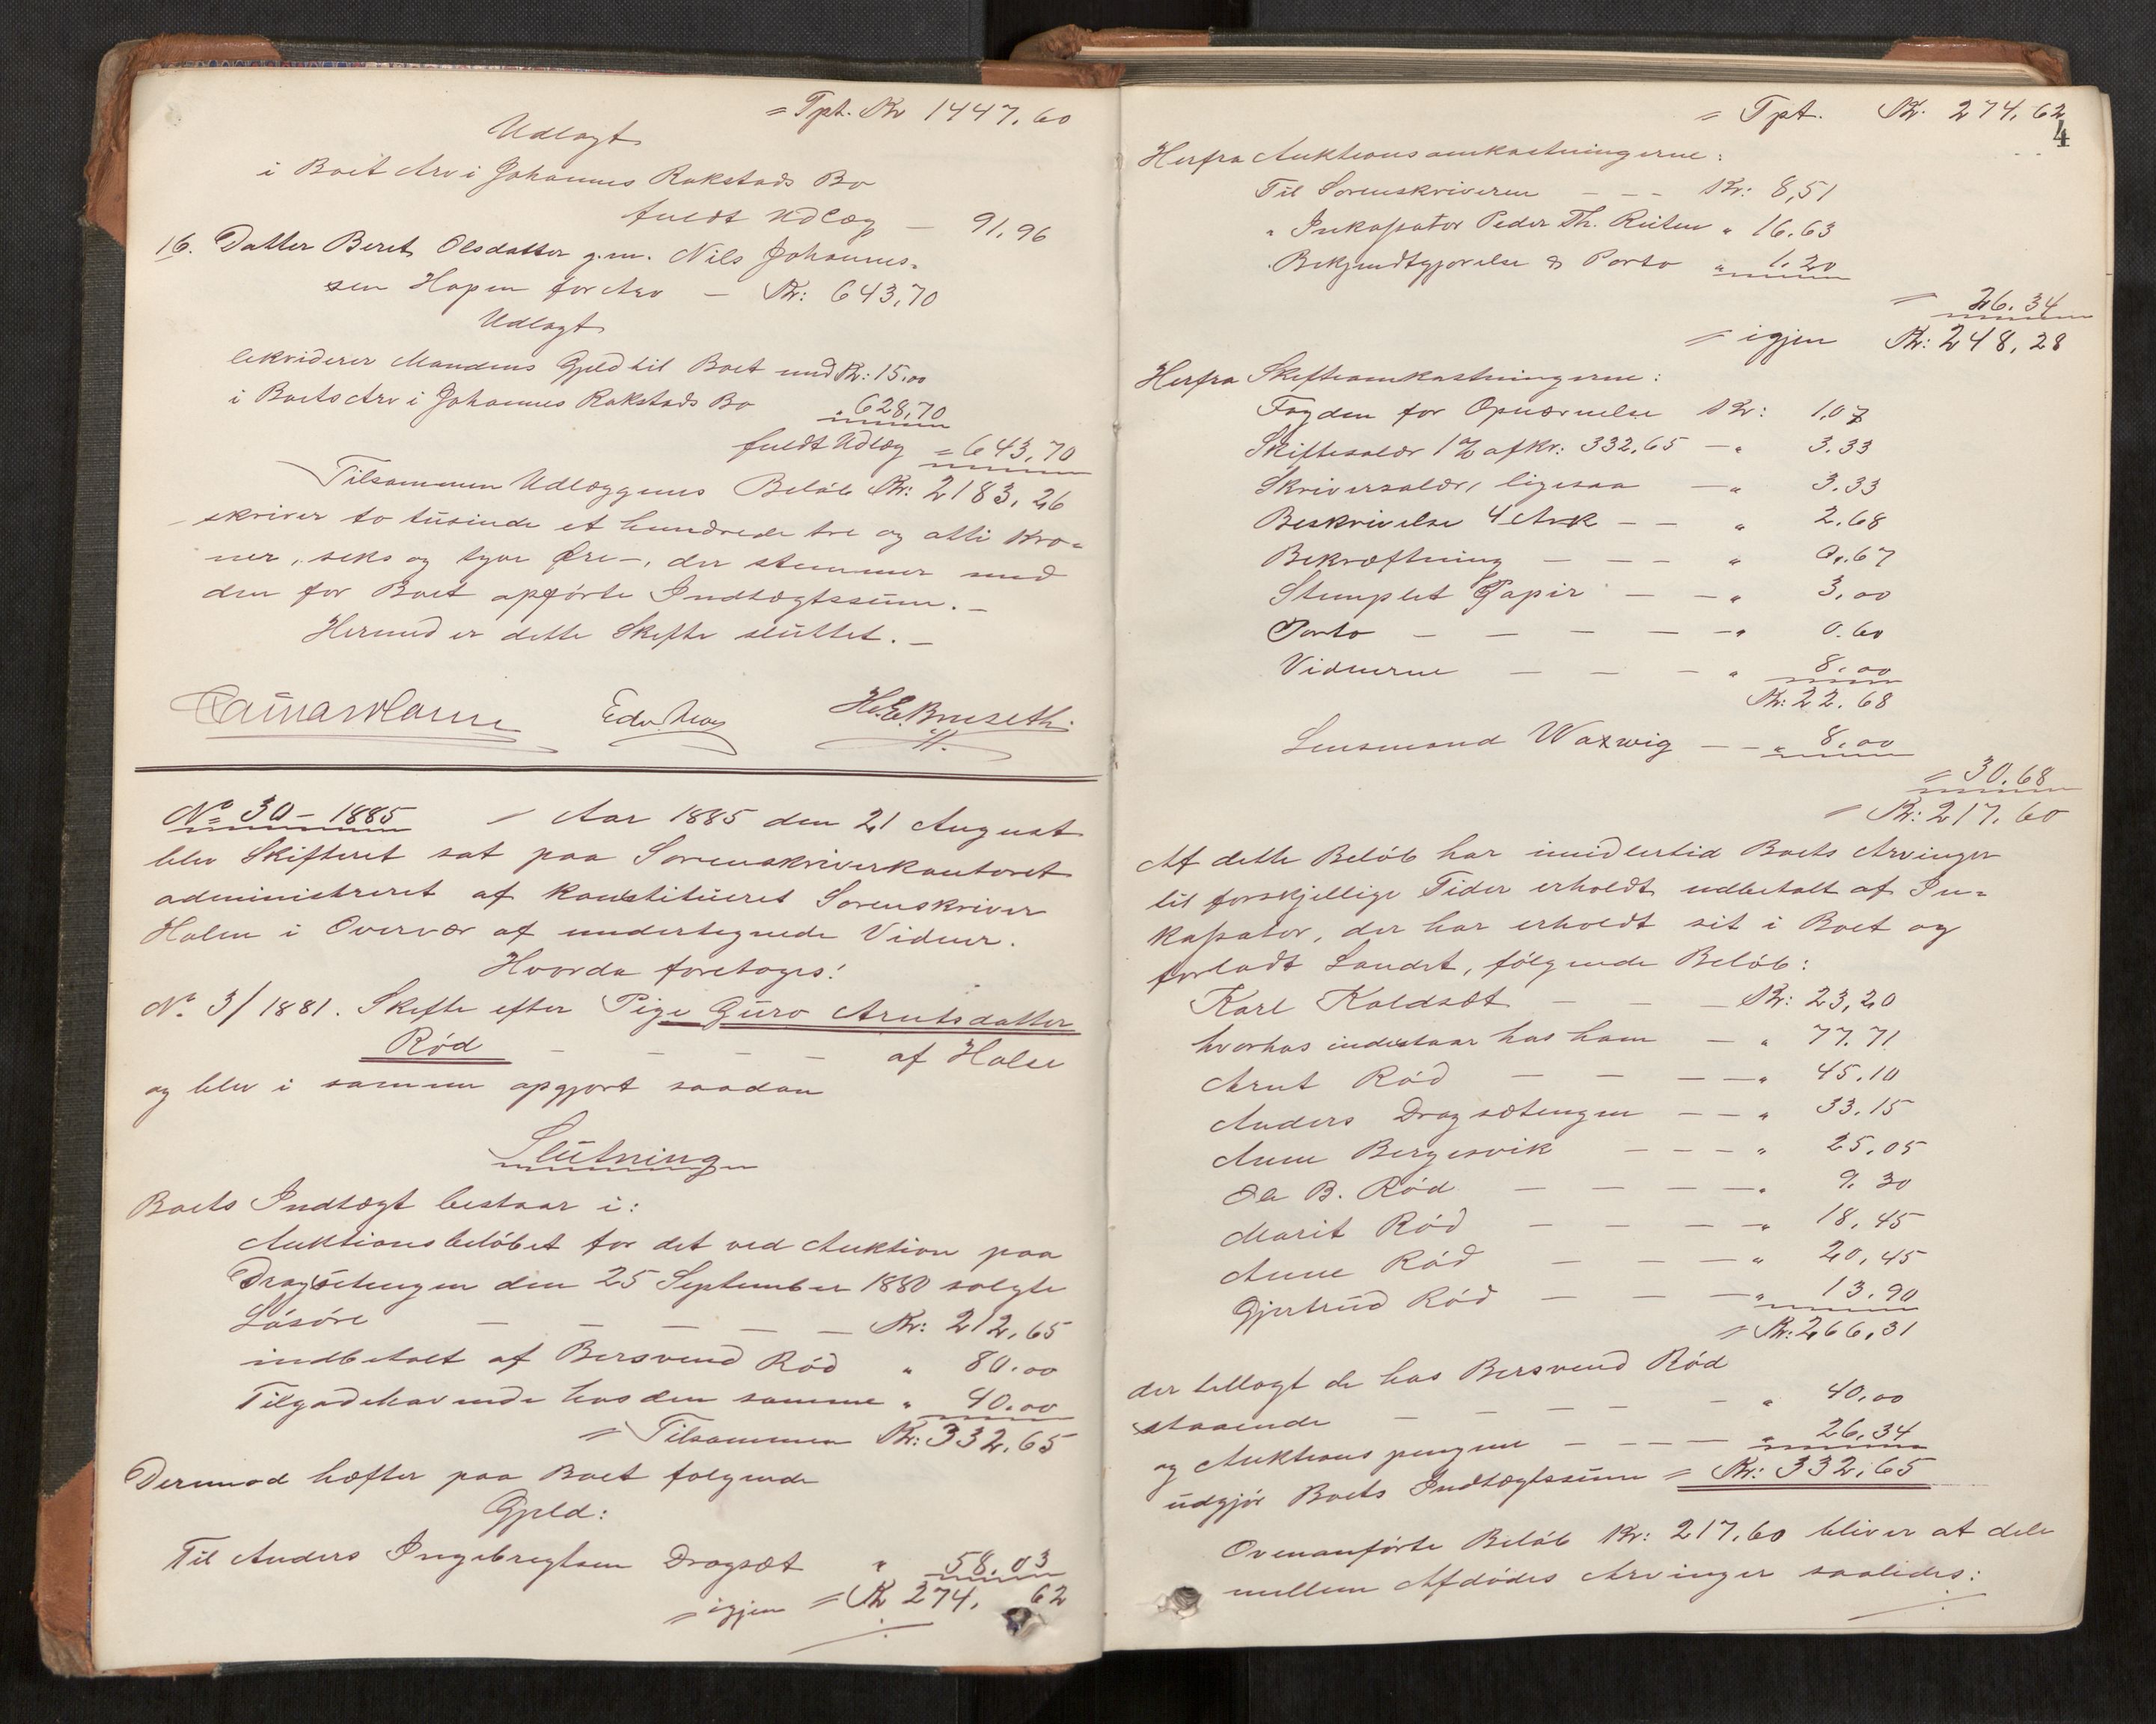 = Tpt. Kr 1447.60
Udlagt
i Boets Arv i Johannes Rakstads Bo
fuldt Udlæg — 91.96
16. Datter Beret Olsdatter g.m. Nils Johannes-
sen Hopen for Arv — Kr: 643,70
Udlagt
lekviderer Mandens Gjeld til Boet med Kr: 15.00
i Boets Arv i Johannes Rakstads Bo " 628,70
fuldt Udlæg = 643,70
Tilsammen Udlæggenes Beløb Kr: 2183,26
— skriver to tusinde et hundrede tre og otti Kro-
ner, seks og tyve Øre —, der stemmer med
den for Boet opførte Indtægtssum. —
Hermed er dette Skifte sluttet. —
Edv. H. E. Bruseth
No 30 – 1885 / Aar 1885 den 21 August
blev Skifteret sat paa Sorenskriverkontoret
administreret af konstitueret Sorenskriver
Holm i Overvær af undertegnede Vidner.
Hvorda foretoges:
No. 3/1881. Skifte efter Pige Guro Arntsdatter
Rød — — — — af Halse
og blev i samme opgjort saadan
Slutning
Boets Indtægt bestaar i:
Auktionsbeløbet for det ved Auktion paa
Dragsetengen den 25 September 1880 solgte
Løsøre — — — — — Kr: 212,65
indbetalt af Bersvend Rød " 80.00
Tilgodehavende hos den samme " 40.00
= Tilsammen Kr: 332.65
Dermod hæfter paa Boet følgende
Gjeld:
Til Anders Ingebregtsen Dragsæt " 58.03
= igjen = Kr 274,62
= Tpt. Kr. 274,62
4
Herfra Auktionsomkostningerne:
Til Sorenskriveren — — — Kr: 8,51
" Inkassator Peder Th. Reiten " 16.63
Bekjendtgjørelse & Porto " 1.20
= 26.34
= igjen Kr: 248,28
Herfra Skifteomkostningerne:
Fogden for Opnævnelse Kr: 1,07
Skiftesalær 1% af Kr: 332,65 — " 3.33
Skriversalær, ligesaa — " 3.33
Beskrivelse 4 Ark — — " 2.68
Bekræftning — — — " 0.67
Stemplet Papir — — " 3,00
Porto — — — — — " 0.60
Vidnerne — — — " 8.00
Kr: 22.68
Lensmand Waxwig — — " 8.00
= 30.68
= Kr: 217.60
Af dette Beløb har imidlertid Boets Arvinger
til forskjellige Tider erholdt udbetalt af In-
kassator, der har erholdt sit i Boet og
forladt Landet, følgende Beløb:
Karl Koldsæt — — — Kr: 23,20
hvorhos indestaar hos ham — " 77.71
Arnt Rød — — — — " 45.10
Anders Dragsætengen — — " 33.15
Anne Bergesvik — — — " 25.05
Ole B. Rød — — — — " 9.30
Marit Rød — — — — " 18,45
Anne Rød — — — " 20,45
Gjertrud Rød — — — " 13.90
= Kr: 266,31
der tillagt de hos Bersvend Rød
staaende — — — — — " 40,00
og Auktionspengene — — — — " 26,34
udgjør Boets Indtægtssum = Kr: 332,65
Ovenanførte Beløb Kr: 217.60 bliver at dele
mellem Afdødes Arvinger saaledes: